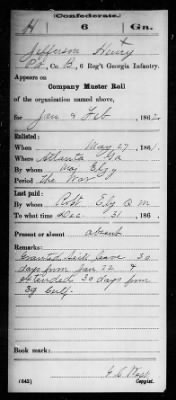 (Confederate.)
H 6 Ga.
Jefferson Henry
Pvt, Co. B, 6 Reg't Georgia Infantry.
Appears on
Company Muster Roll
of the organization named above,
for Jan & Feb, 186
Enlisted:
When May 27, 186
Where Atlanta Ga
By whom Maj
Period the War
Last paid:
By whom Capt Q M
To what time Dec 31, 186
Present or absent absent
Remarks:
Granted Sick leave 30
days from Jan 22 &
extended 30 days from
Book mark:
(642) Copyist.